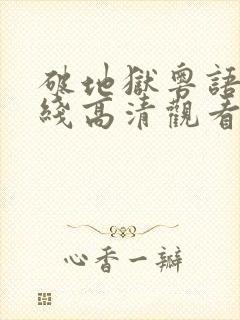 破地獄粵語
綫高清觀看
心香一瓣